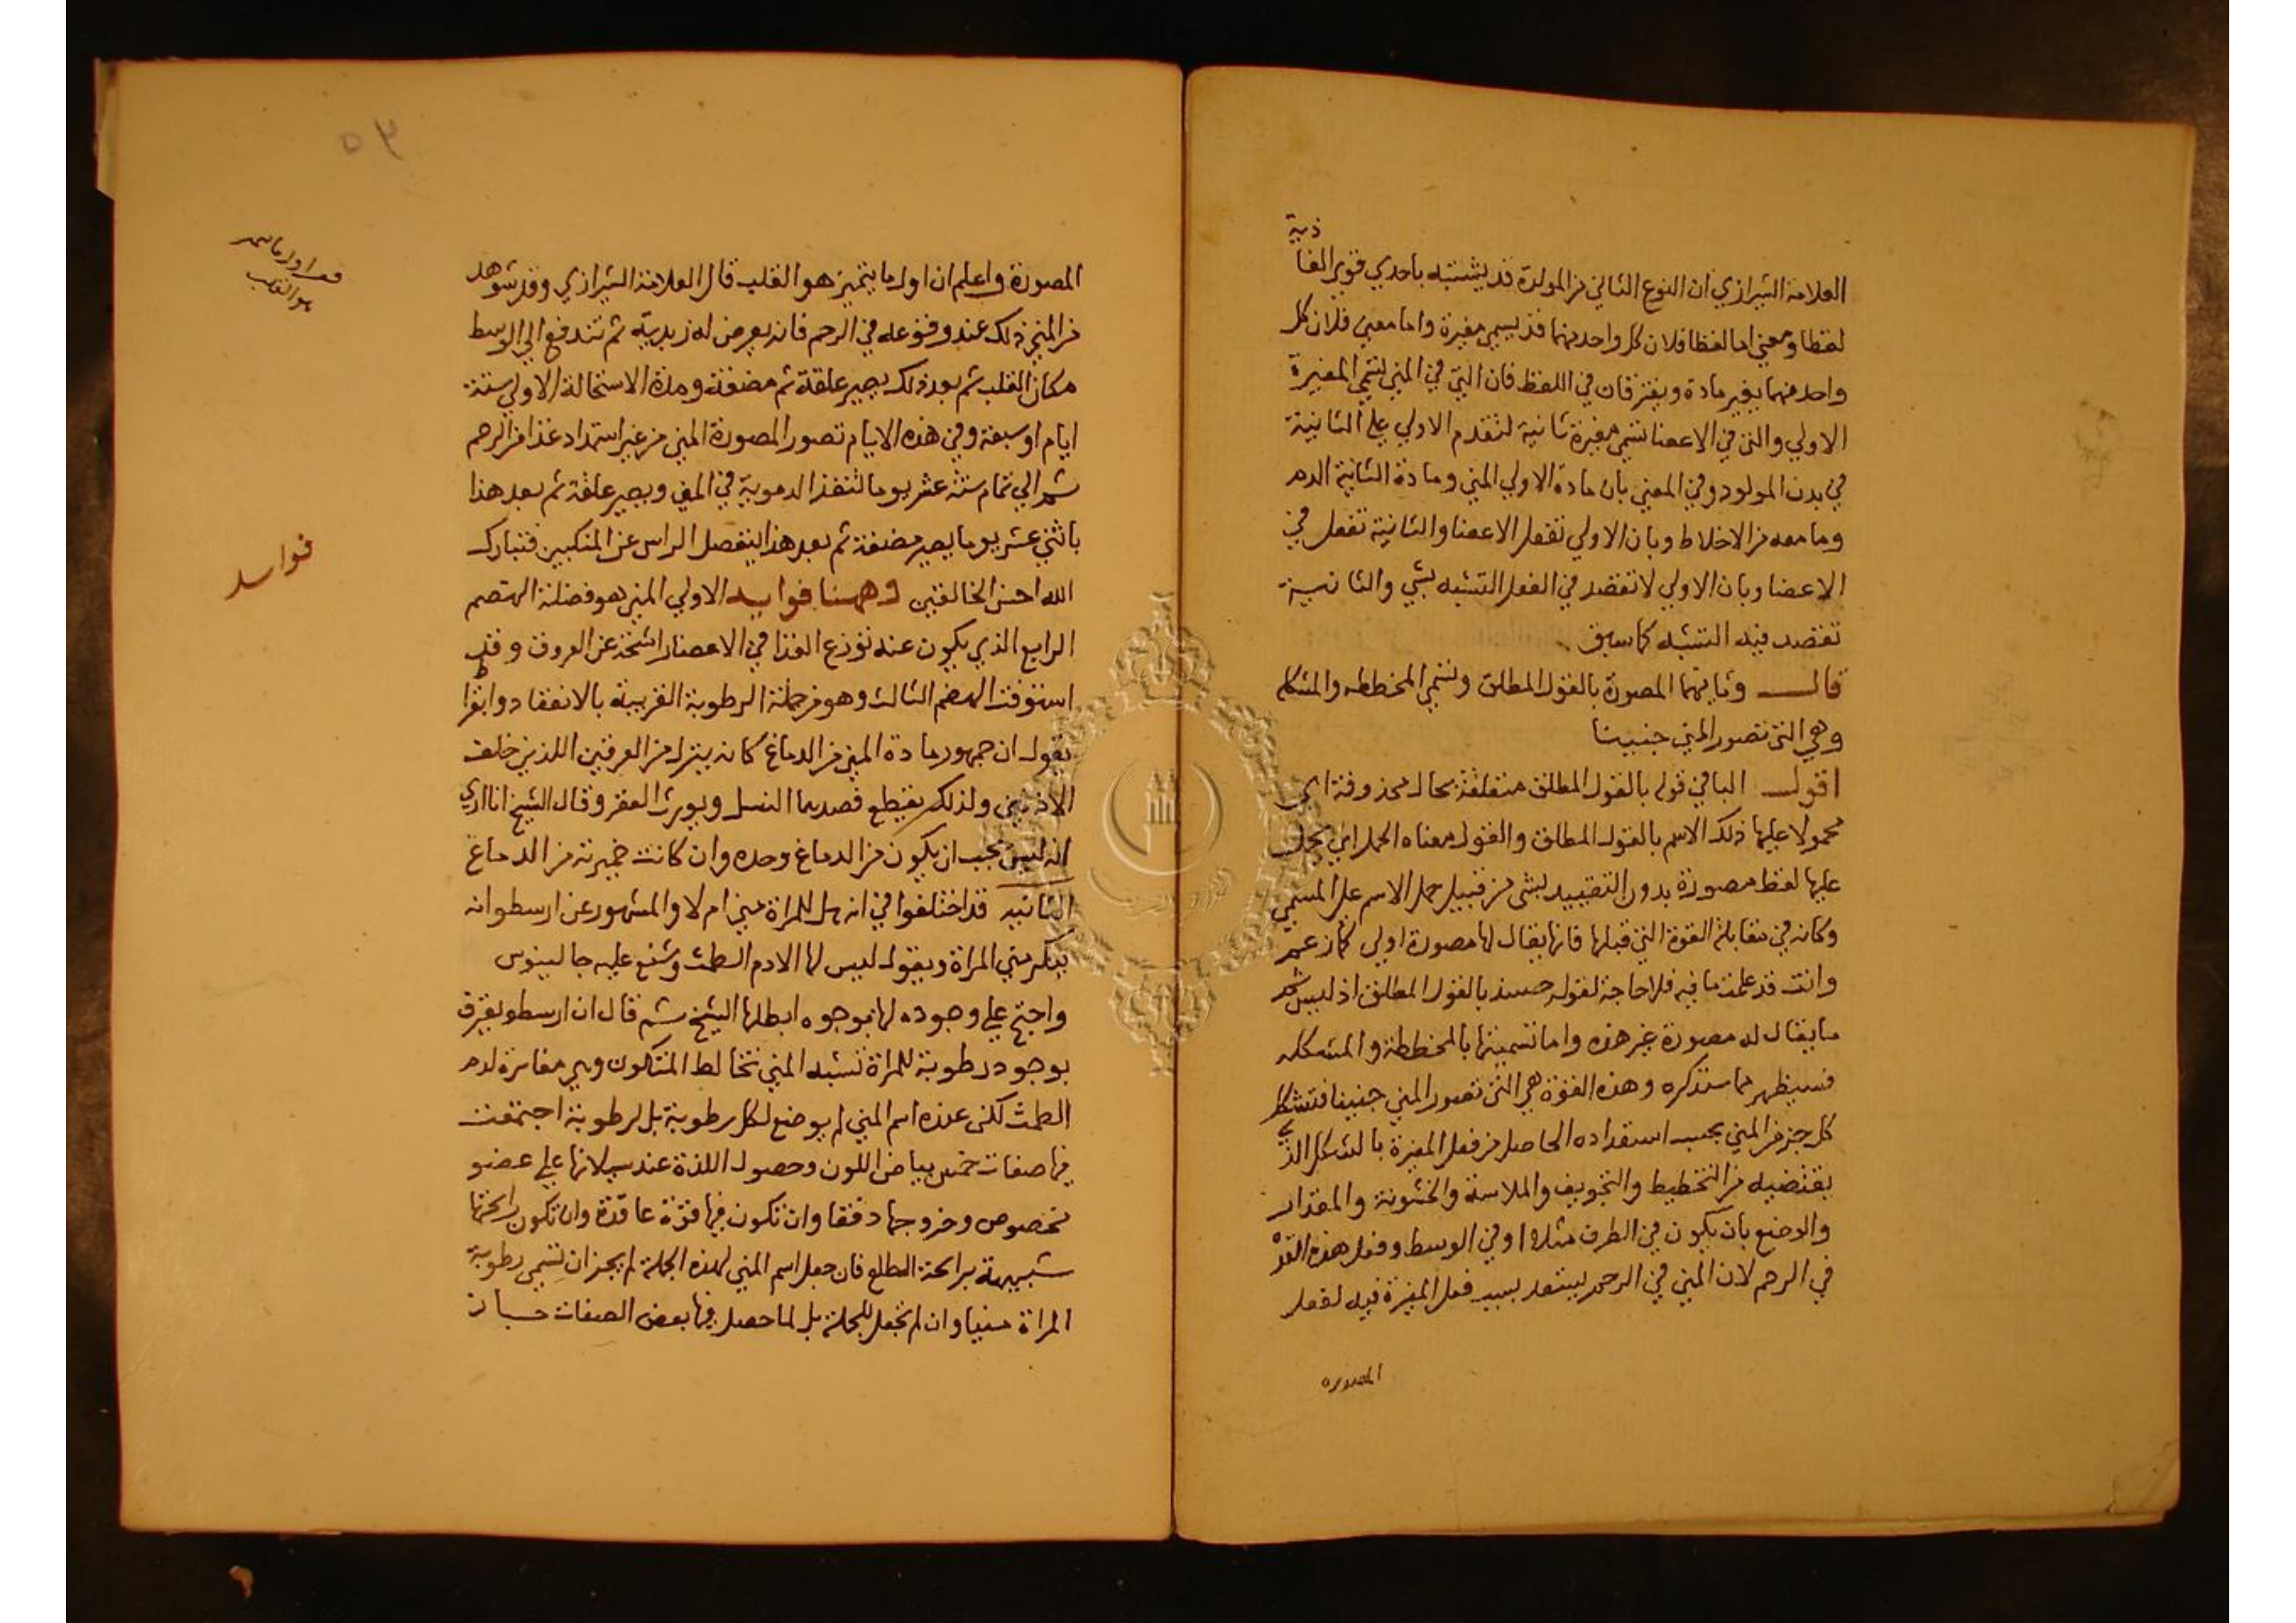 العلامة الشيرازي ان النوع الثاني من المولدة قد يشتبه باحدي قوتي الغا
ذية
لفظا ومعني اما لفظا فلان كل واحد منهما قد يسمي مغيرة واما معني فلان كل
واحد منهما يغير مادة ويفترقان في اللفظ فان التي في المني تسمي المغيرة
الاولي والتي في الاعضا تسمي مغيرة ثانية لتقدم الاولي علي الثانية
في بدن المولود وفي المعني بان مادة الاولي المني ومادة الثانية الدم
وما معه من الاخلاط وبان الاولي تفعل الاعضا والثانية تفعل في
الاعضا وبان الاولي لا تقصد في الفعل التشبه بشي والثانية
تقصد فيه التشبه كما سبق
قال وثانيهما المصورة بالقول المطلق وتسمي المخططه والمشكله
وهي التي تصور المني جنينا
اقول البا في قوله بالقول المطلق متعلقة بحال محذوفة اي
محمولا عليها ذلك الاسم بالقول المطلق والقول معناه الحمل اي يحمل
عليها لفظ مصورة بدون التقييد بشي من قبيل حمل الاسم علي المسمي
وكانه في مقابلة القوة التي قبلها فانها يقال لها مصورة اولي كما زعم
وانت قد علمت ما فيه فلا حاجة لقوله حينيذ بالقول المطلق اذ ليس ثم
ما يقال له مصورة غير هذه واما تسميتها بالمخططة والمشكله
فسيظهر مما سنذكره وهذه القوة هي التي تصور المني جنينا فتشكل
كل جز من المني بحسب استعداده الحاصل من فعل المغيرة بالشكل الذي
يقتضيه من التخطيط والتجويف والملاسة والخشونة والمقدار
والوضع بان يكون في الطرف مثلا او في الوسط وفعل هذه القوة
في الرحم لان المني في الرحم يستعد بسبب فعل المغيرة فيه لفعل
المصوره
٥٣
المصورة واعلم ان اول ما يتميز هو القلب قال العلامة الشيرازي وقد شوهد
من المني ذلك عند وقوعه في الرحم فانه يعرض له زبدية ثم تندفع الي الوسط
مكان القلب ثم بعد ذلك يصير علقة ثم مضغة ومدة الاستحالة الاولي ستة
ايام او سبعة وفي هذه الايام تصور المصورة المني من غير استمداد غذا من الرحم
ثم الي تمام ستة عشر يوما تنفذ الدموية في المني ويصير علقة ثم بعد هذا
باثني عشر يوما يصير مضغة ثم بعد هذا ينفصل الراس عن المنكبين فتبارك
الله احسن الخالقين وههنا فوايد الاولي المني هو فضلة الهضم
الرابع الذي يكون عند توزع الغذا في الاعضا راشحة عن العروق وقد
استوفت الهضم الثالث وهو من جملة الرطوبة الغريبة بالانعقاد وابقراط
يقول ان جمهور مادة المني من الدماغ كانه ينزل من العرقين اللذين خلف
الاذنين ولذلك يقطع فصدهما النسل ويورث العقر وقال الشيخ انا اري
انه ليس يجب ان يكون من الدماغ وحده وان كانت خميرته من الدماغ
الثانيه قد اختلفوا في انه هل للمراة مني ام لا والمشهور عن ارسطو انه
ينكر مني المراة ويقول ليس لها الا دم الطمث وشنع عليه جالينوس
واحتج علي وجوده لها بوجوه ابطلها الشيخ ثم قال ان ارسطو يعترف
بوجود رطوبة للمراة تشبه المني تخالط المتكون وهي مغايرة لدم
الطمث لكن عنده اسم المني لم يوضع لكل رطوبة بل لرطوبة اجتمعت
فيها صفات خمس بياض اللون وحصول اللذة عند سيلانها علي عضو
مخصوص وخروجها دفقا وان تكون فيها قوة عاقدة وان تكون رائحتها
شبيهة برائحة الطلع فان جعل اسم المني لهذه الجملة لم يجز ان تسمي رطوبة
المراة منيا وان لم تجعل للجملة بل لما حصل فيها بعض الصفات جاز
هو القلب
فوايد